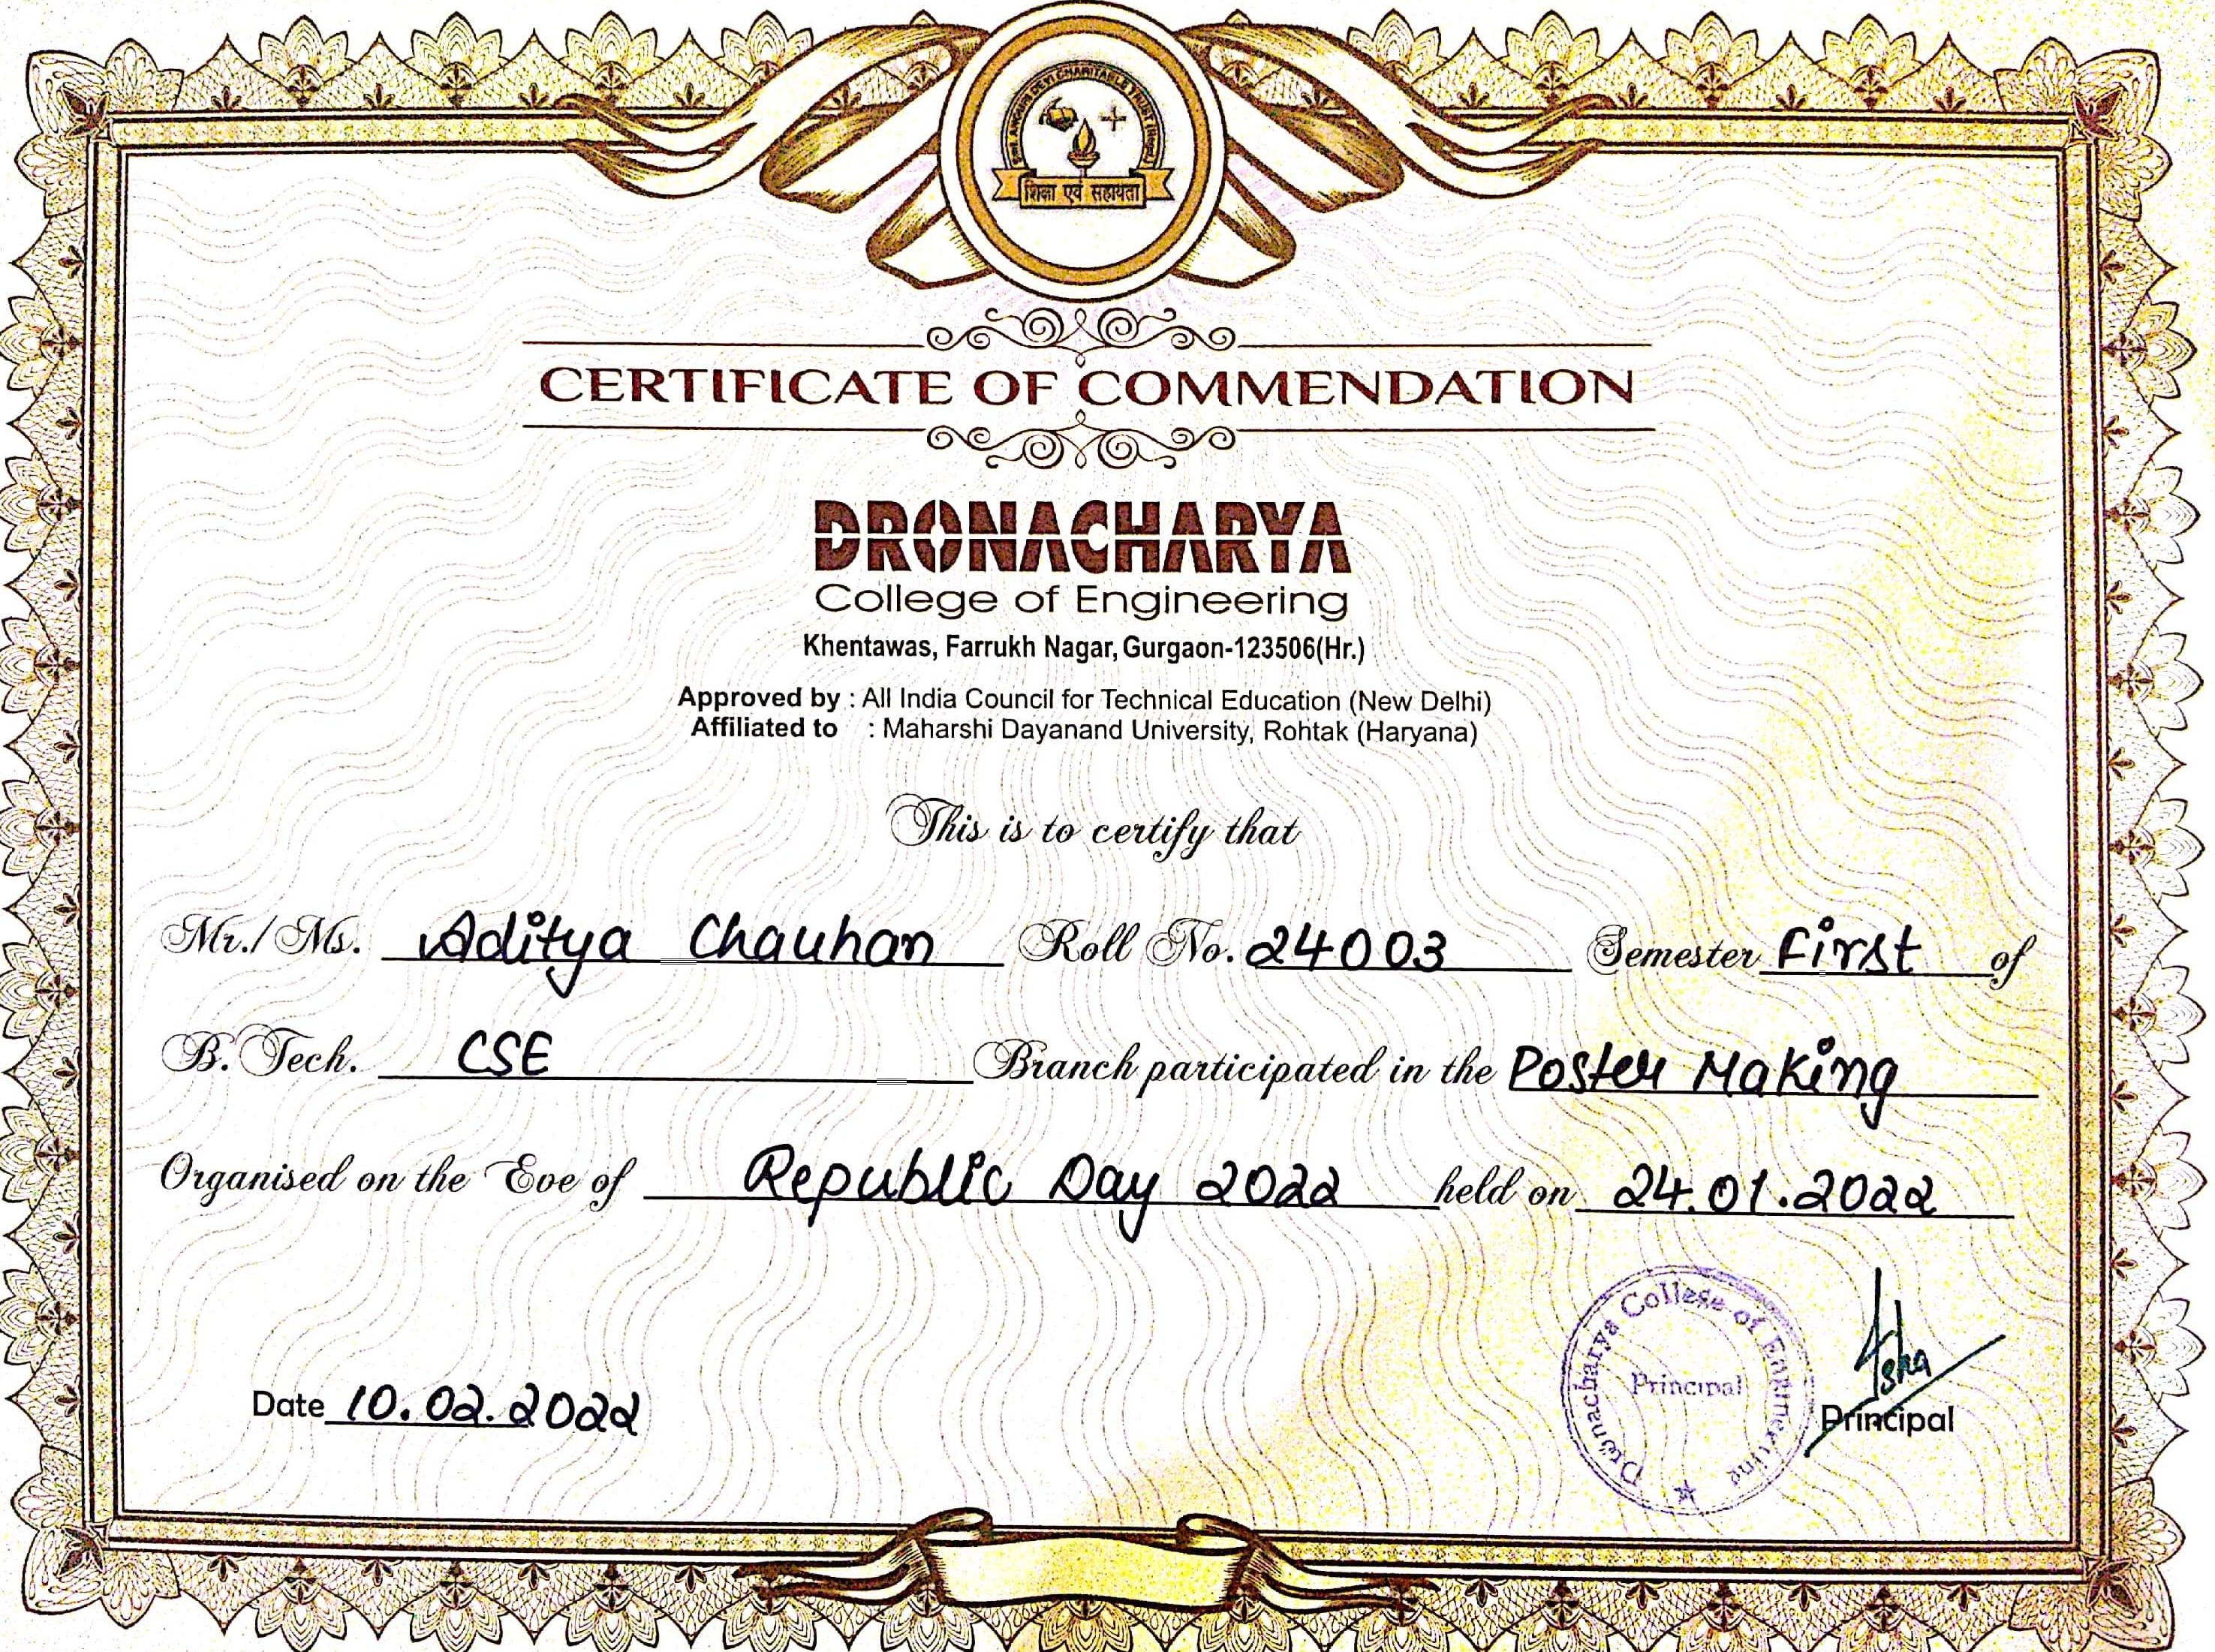 Smt. ANGURI DEVI CHARITABLE TRUST
शिक्षा एवं सहायता
CERTIFICATE OF COMMENDATION
DRONACHARYA
College of Engineering
Khentawas, Farrukh Nagar, Gurgaon-123506(Hr.)
Approved by : All India Council for Technical Education (New Delhi)
Affiliated to : Maharshi Dayanand University, Rohtak (Haryana)
This is to certify that
Mr./ Ms. Aditya Chauhan Roll No. 24003 Semester First of
B. Tech. CSE Branch participated in the Poster Making
Organised on the Eve of Republic Day 2022 held on 24.01.2022
Dronacharya College of Engineering
Principal
Isha
Date 10.02.2022
Principal